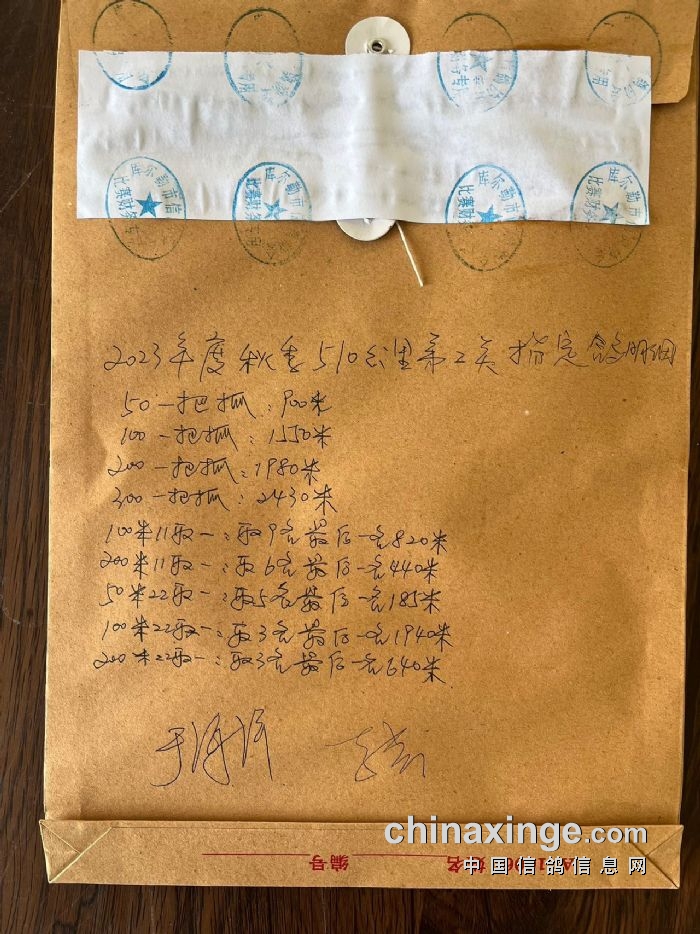 库尔勒市信
比赛财务专
库尔勒市
比赛财务专
2023年度秋季510公里第2类指定鸽明细
50一把抓:900米
100一把抓:1550米
200一把抓:1980米
300一把抓:2430米
100米11取一:取9名最后一名820米
200米11取一:取6名最后一名440米
50米22取一:取5名最后一名185米
100米22取一:取3名最后一名1940米
200米22取一:取3名最后一名640米
chinaxinge.com
中国信鸽信息网
姓名
编号